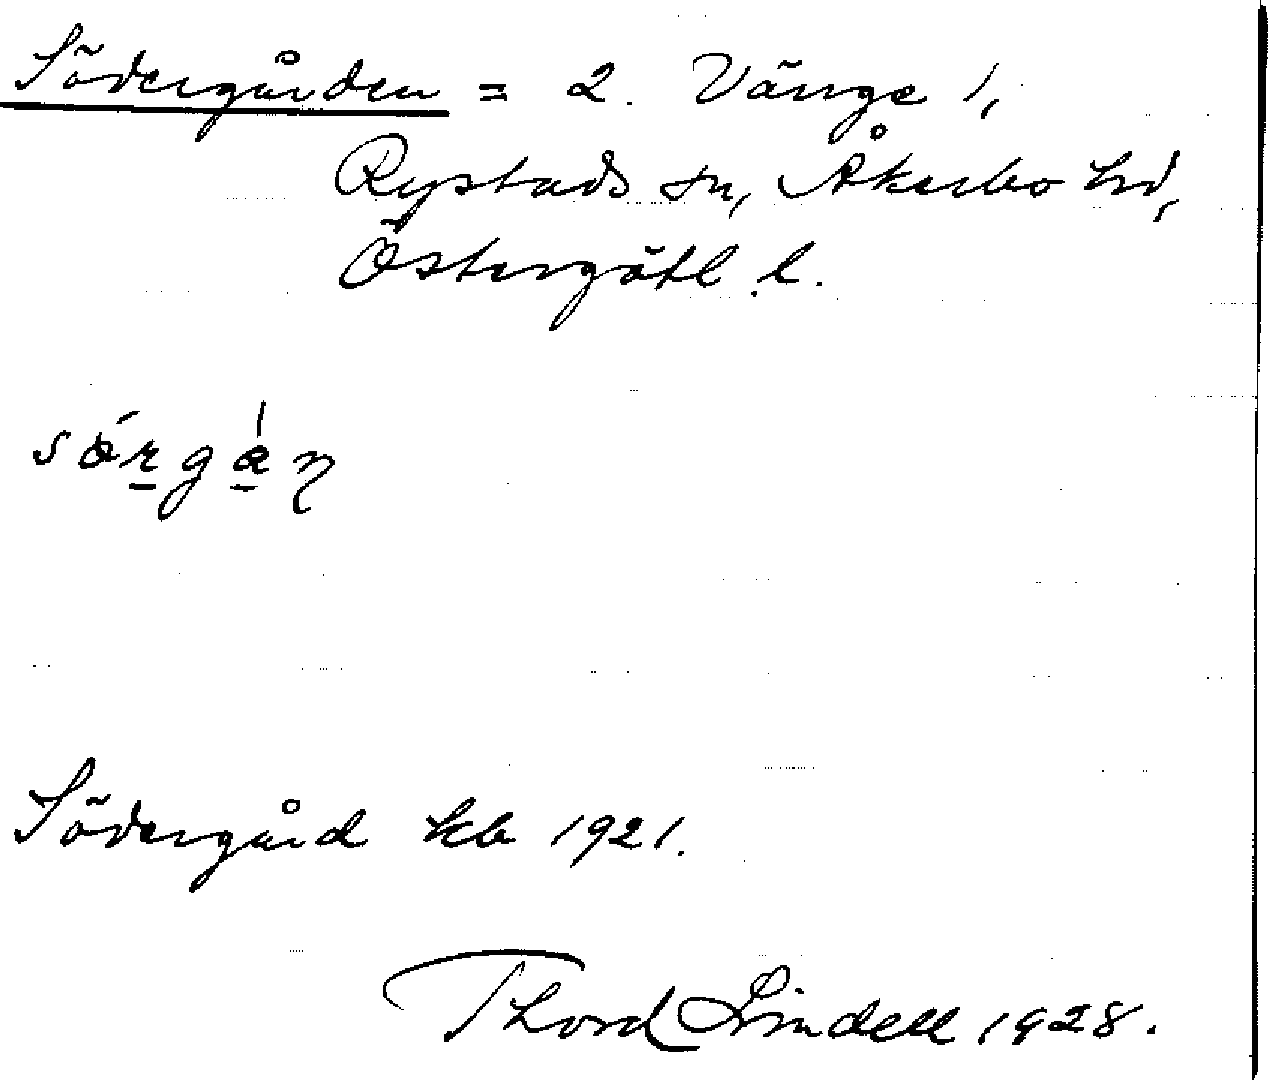 Södergården = 2. Vänge 1,
Rystads sn, Åkerbo hd,
Östergötl. l.
Södergård kb 1921.
Thord Lindell 1928.